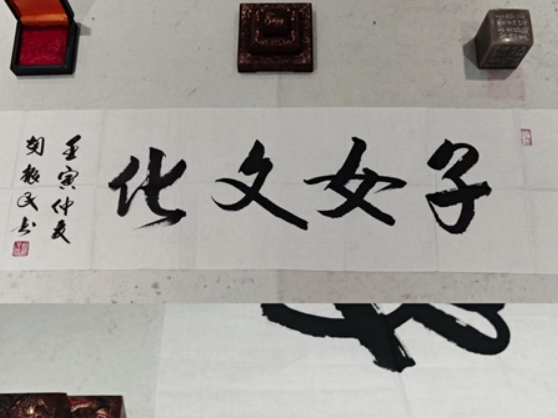 子女文化
壬寅仲夏
刘民书